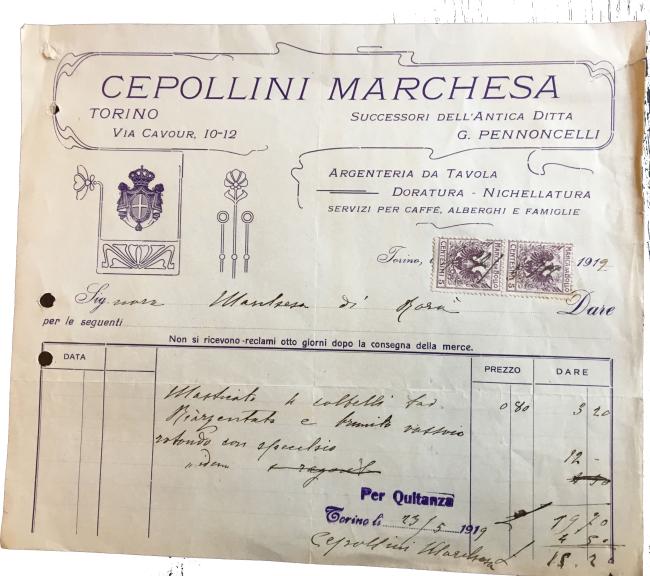 CEPOLLINI MARCHESA
TORINO
VIA CAVOUR, 10-12
SUCCESSORI DELL'ANTICA DITTA
G. PENNONCELLI
ARGENTERIA DA TAVOLA
DORATURA - NICHELLATURA
SERVIZI PER CAFFÈ, ALBERGHI E FAMIGLIE
Torino, 1919
MARCA DA BOLLO
CENTESIMI 5
MARCA DA BOLLO
CENTESIMI 5
Signora Marchesa di Rorà Dare
per le seguenti
Non si ricevono reclami otto giorni dopo la consegna della merce.
DATA PREZZO DARE
Masticato 4 coltelli 0 80 3 20
Riargentato e brunito vassoio
rotondo con specchio 12 -
idem
Per Quitanza
Torino li 23/5 1919 19/20
4 50
Cepollini Marchesa 15.20